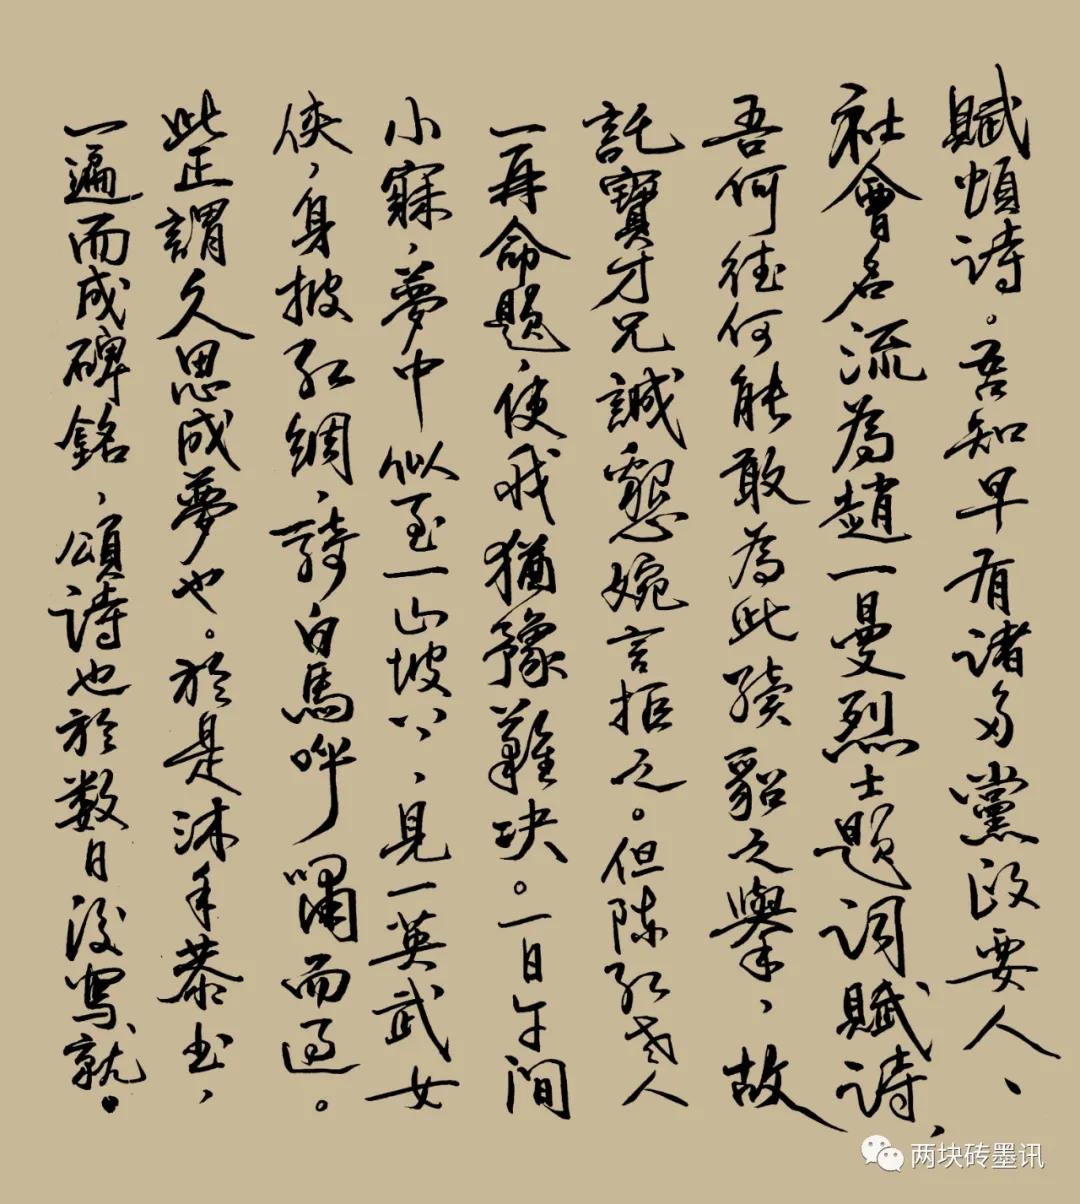 賦頌詩。吾知早有諸多黨政要人、
社會名流為趙一曼烈士題詞賦詩，
吾何德何能敢為此續貂之舉，故
託寶才兄誠懇婉言拒之。但陈红老人
一再命題，使我猶豫難决。一日午间
小寐，夢中似至一山坡下，見一英武女
侠，身披红綢，騎白馬呼嘯而過。
此正謂久思成夢也。於是沐手恭书，
一遍而成碑銘，頌詩也於数日後寫就。
两块砖墨讯